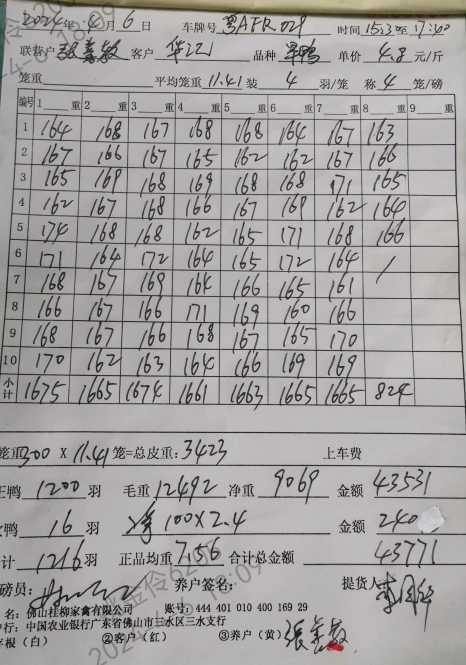 2024年4月6日 车牌号 粤AFR029 时间15:30至17:40
联养户 张喜敏 客户 华江 品种 单价 4.8 元/斤
笼重 平均笼重 11.41 装 4 羽/笼 称 4 笼/磅
编号 1 重 2 重 3 重 4 重 5 重 6 重 7 重 8 重 9 重
1 164 168 167 168 168 164 167 163
2 167 166 167 165 162 162 167 166
3 165 169 168 169 168 168 171 165
4 162 167 168 166 167 169 162 164
5 174 168 168 162 165 171 168 166
6 171 164 172 164 165 172 164 /
7 168 167 169 164 166 165 161
8 166 167 166 171 169 160 166
9 168 167 166 168 167 165 170
10 170 162 163 164 166 169 169
小计 1675 1665 1674 1661 1663 1665 1665 824
笼重300 X 11.41 笼=总皮重: 3423 上车费
正鸭 1200 羽 毛重 12492 净重 9069 金额 43531
鸭 16 羽 净 100X2.4 金额 240
计 1216 羽 正品均重 7.56 合计总金额 43771
磅员: 养户签名: 提货人
名: 佛山桂柳家禽有限公司 账号: 444 401 010 400 169 29
行: 中国农业银行广东省佛山市三水区三水支行
存根(白) ②客户(红) ③养户(黄) 张喜敏